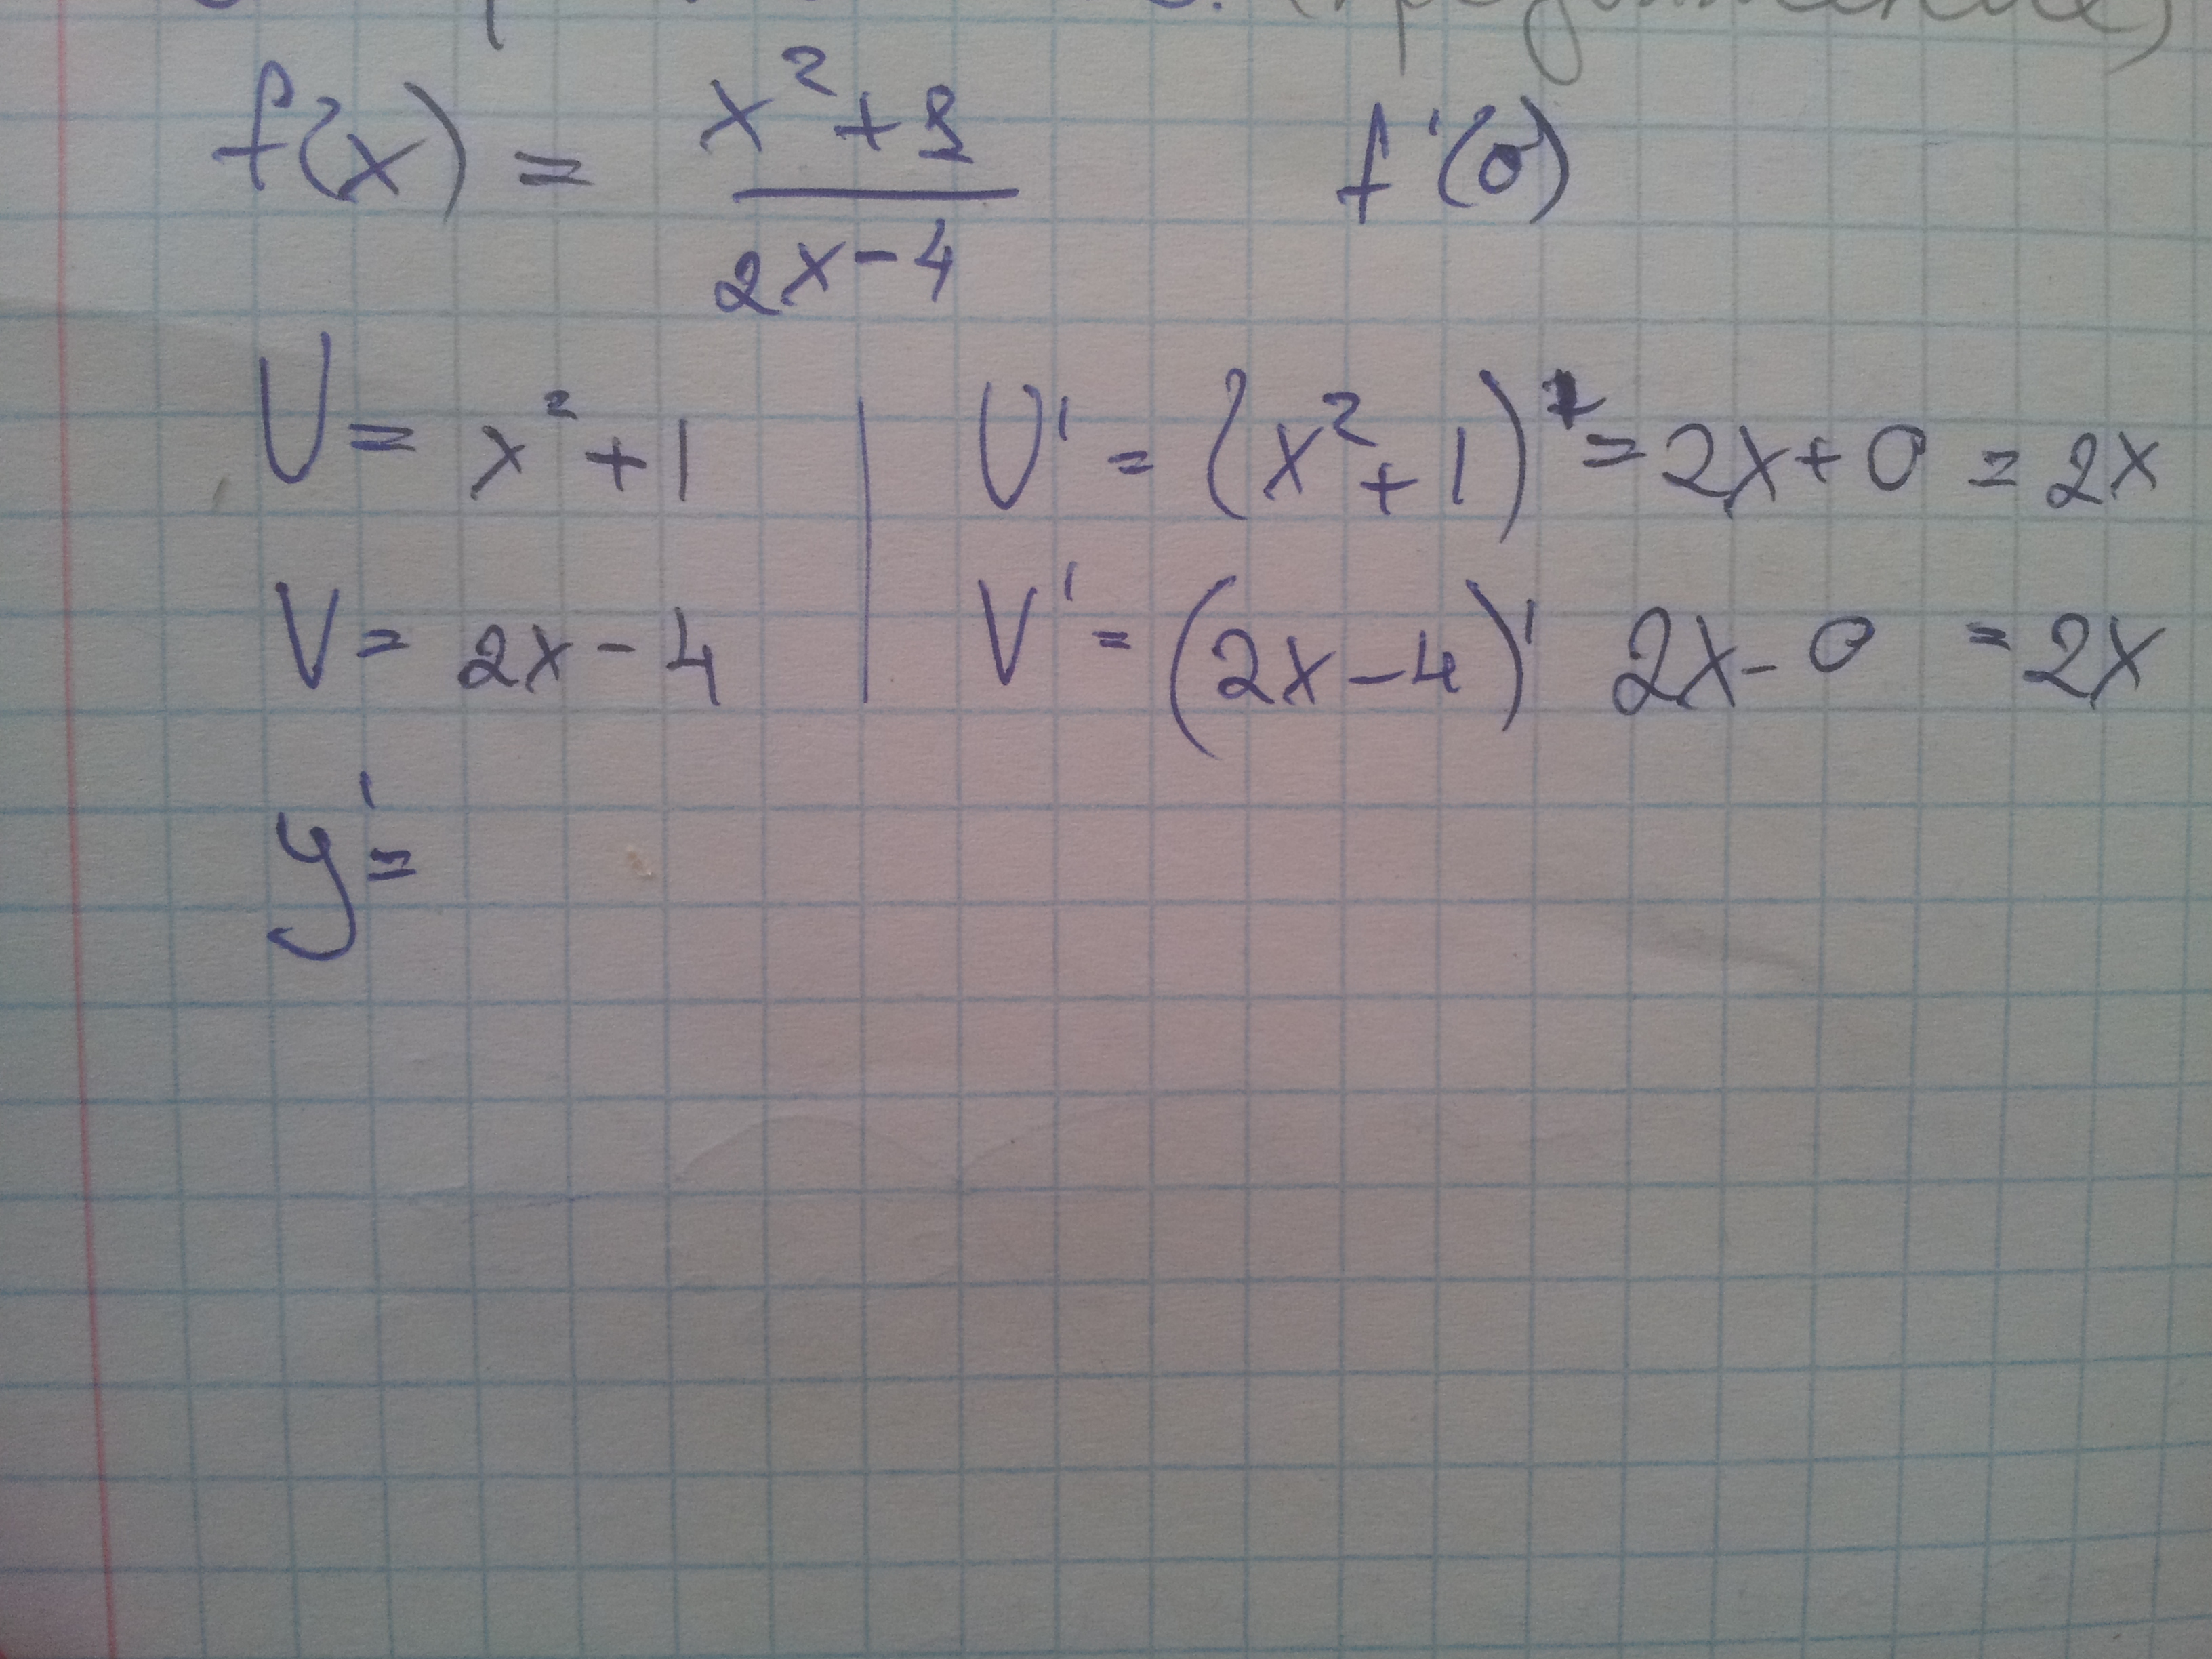 f(x) = x²+1 / 2x-4 f'(0)
U = x²+1 | U' = (x²+1)' = 2x+0 = 2x
V = 2x-4 | V' = (2x-4)' 2x-0 = 2x
y' =